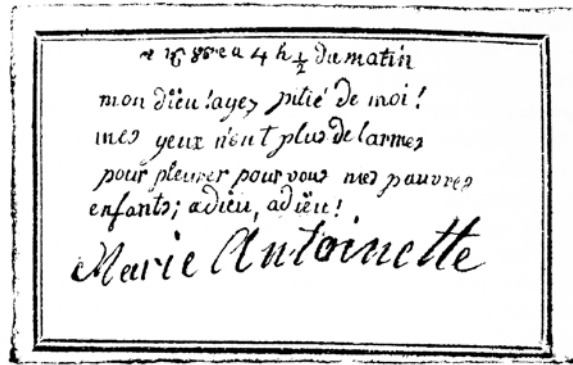 4 h ½ du matin
mon dieu ! ayez pitié de moi !
mes yeux n'ont plus de larmes
pour pleurer pour vous mes pauvres
enfants ; adieu, adieu !
Marie Antoinette